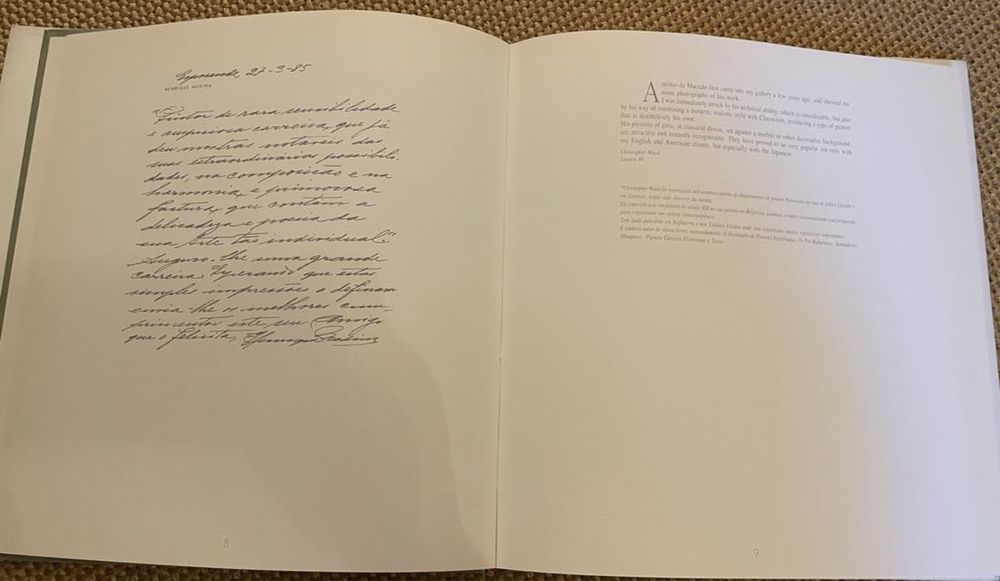 Esposende, 27-3-85
HENRIQUE MEDINA
"Pintor de rara sensibilidade
e auspiciosa carreira, que já
deu mostras notáveis das
suas extraordinárias possibili-
dades, na composição e na
harmonia, e primorosa
factura, que contém a
delicadeza e poesia da
sua Arte tão individual."
Auguro-lhe uma grande
carreira. Esperando que estas
simples impressões o definam
envia-lhe os melhores cum-
primentos este seu Amigo
que o felicita, Henrique Medina
8
Antonio de Macedo first came into my gallery a few years ago, and showed me
some photographs of his work.
I was immediately struck by his technical ability, which is considerable, but also
by his way of combining a modern, realistic style with Classicism, producing a type of picture
that is distinctively his own.
His pictures of girls, in classical dress, set against a marble or other decorative background,
are attractive and instantly recognisable. They have proved to be very popular not only with
my English and American clients, but especially with the Japanese.
Christopher Wood
London
*Christopher Wood foi responsável pelo estabelecimento do departamento de pintura Vitoriana na casa de leilões Christie's
em Londres, sendo seu director da mesma.
Ele especializa-se em pintura do século XIX na sua galeria em Belgravia, Londres, e mais ocasionalmente está preparado
para representar um artista contemporâneo.
Tem dado palestras em Inglaterra e nos Estados Unidos onde tem organizado muitas exposições importantes.
É também autor de vários livros, nomeadamente: O Dicionário de Pintores Vitorianos, Os Pré-Rafaelitas, Sonhadores
Olímpicos: Pintura Clássica Vitoriana e Tissot.
9